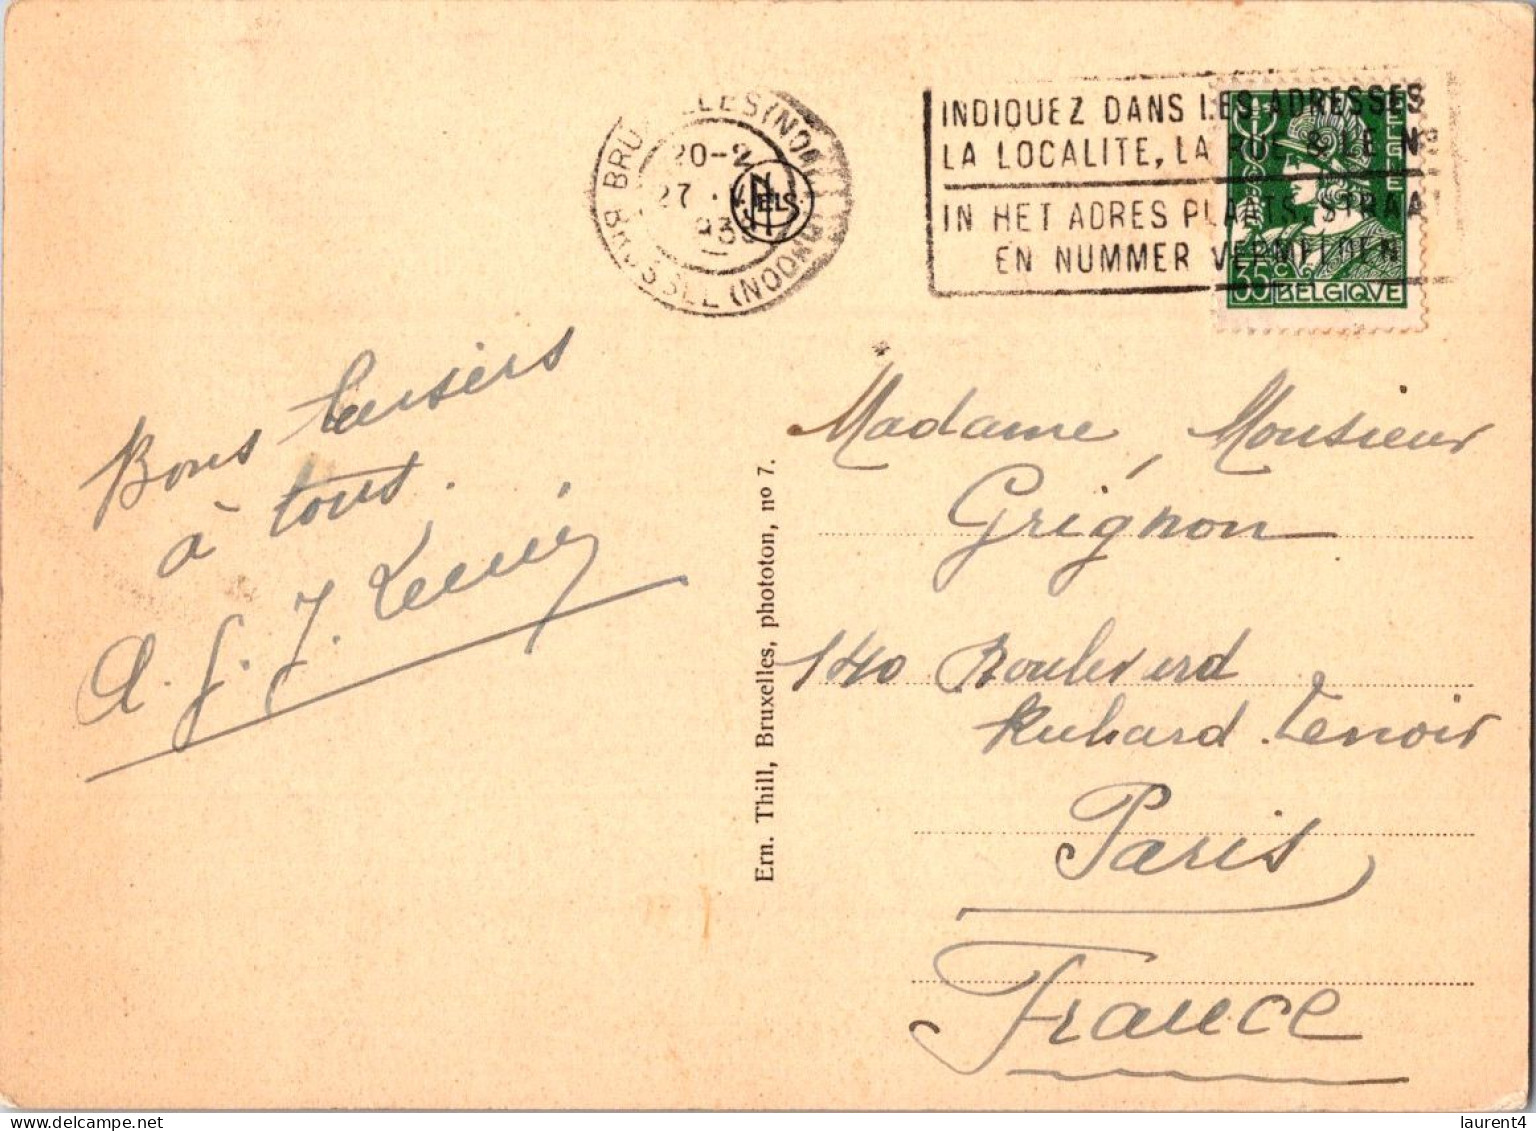 BRUXELLES (NORD)
BRUSSEL (NOORD)
20-2
27
193
NELS
INDIQUEZ DANS LES ADRESSES
LA LOCALITE, LA RUE & LE No
IN HET ADRES PLAATS, STRAAT
EN NUMMER VERMELDEN
BELGIE
35 c BELGIQVE
Bons baisers
à tous.
A. G. J.
Madame, Monsieur
Grignon
140 Boulevard
Richard Lenoir
Paris
France
Ern. Thill, Bruxelles, phototon, no 7.
laurent4